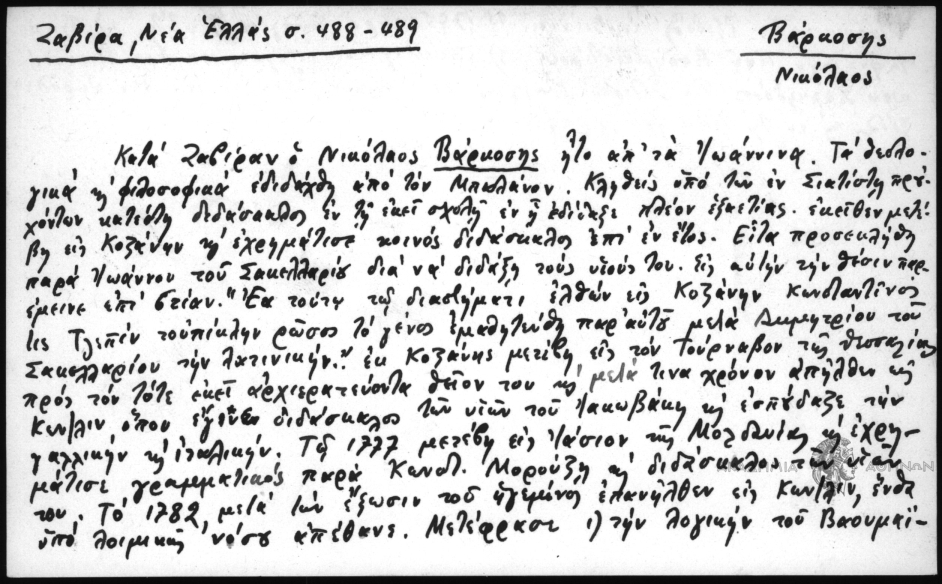 Ζαβίρα, Νέα Ἑλλάς σ. 488-489
Βάρκοσης
Νικόλαος
Κατά Ζαβίραν ὁ Νικόλαος Βάρκοσης ἦτο ἀπ' τά Ἰωάννινα. Τά θεολο-
γικά κ' φιλοσοφικά ἐδιδάχθη ἀπό τόν Μπαλάνον. Κληθείς ὑπό τῶν ἐν Σιατίστῃ πρού-
χόντων κατέστη διδάσκαλος ἐν τῇ ἐκεῖ σχολῇ ἐν ᾗ ἐδίδαξε πλέον ἑξαετίας. ἐκεῖθεν μετέ-
βη εἰς Κοζάνην κ' ἐχρημάτισε κοινός διδάσκαλος ἐπί ἕν ἔτος. Εἶτα προσεκλήθη
παρά Ἰωάννου τοῦ Σακελλαρίου διά νά διδάξῃ τούς υἱούς του. Εἰς αὐτήν τήν θέσιν παρ-
έμεινε ἐπί 5τίαν. "Ἐν τούτῳ τῷ διαστήματι ἐλθών εἰς Κοζάνην Κωνσταντῖνος
τις τοὐπίκλην ρῶσος τό γένος ἐμαθητεύθη παρ' αὐτοῦ μετά Δημητρίου τοῦ
Σακελλαρίου τήν λατινικήν." ἐκ Κοζάνης μετέβη εἰς τόν Τούρναβον τῆς Θεσσαλίας
πρός τόν τότε ἐκεῖ ἀρχιερατεύοντα θεῖον του κ' μετά τινα χρόνον ἀπῆλθεν εἰς
Κων/λιν ὅπου ἐγένετο διδάσκαλος τῶν υἱῶν τοῦ Ἰακωβάκη κ' ἐσπούδαζε τήν
γαλλικήν κ' ἰταλικήν. Τῷ 1777 μετέβη εἰς Ἰάσιον τῆς Μολδαυίας κ' ἐχρη-
μάτισε γραμματικός παρά Κωνστ. Μορούζῃ κ' διδάσκαλος τῶν υἱῶν
του. Τό 1782, μετά τήν ἔξωσιν τοῦ ἡγεμόνος ἐπανῆλθεν εἰς Κων/λιν, ἔνθα
ὑπό λοιμικῆς νόσου ἀπέθανε. Μετέφρασε 1) τήν λογικήν τοῦ Βαουμαϊ-
ΑΚΑΔΗΜΙΑ ΑΘΗΝΩΝ